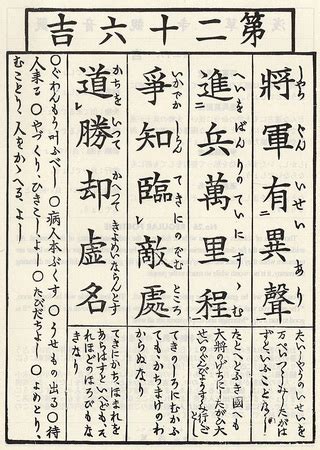 第二十六吉
將軍有異聲
しやうぐんいせいあり
たいしやうのいせいを
万ぺいつゝしみしたがは
ずといふことなし
進兵萬里程
へいをばんりのていにすゝむ
たとへとふき國へも
大將のげぢにしたがひ大
せいのぐんびやうすゝみ行ごとし
爭知臨敵處
いかでかしらんてきにのぞむところ
てきのしろにむかふ
ても、かちまけのわ
からぬなり
道勝却虚名
かちをいつてかへつてきよめいならんとす
てきにかち、ほまれを
あらはすといへども、そ
れほどのほろびもな
きなり
○ぐわんもう叶ふべし ○病人本ぶくす ○うせもの出る ○待
人来る ○やづくり、ひきこしよし ○たびだちよし ○よめとり、
むことり、人をかゝへる、よし